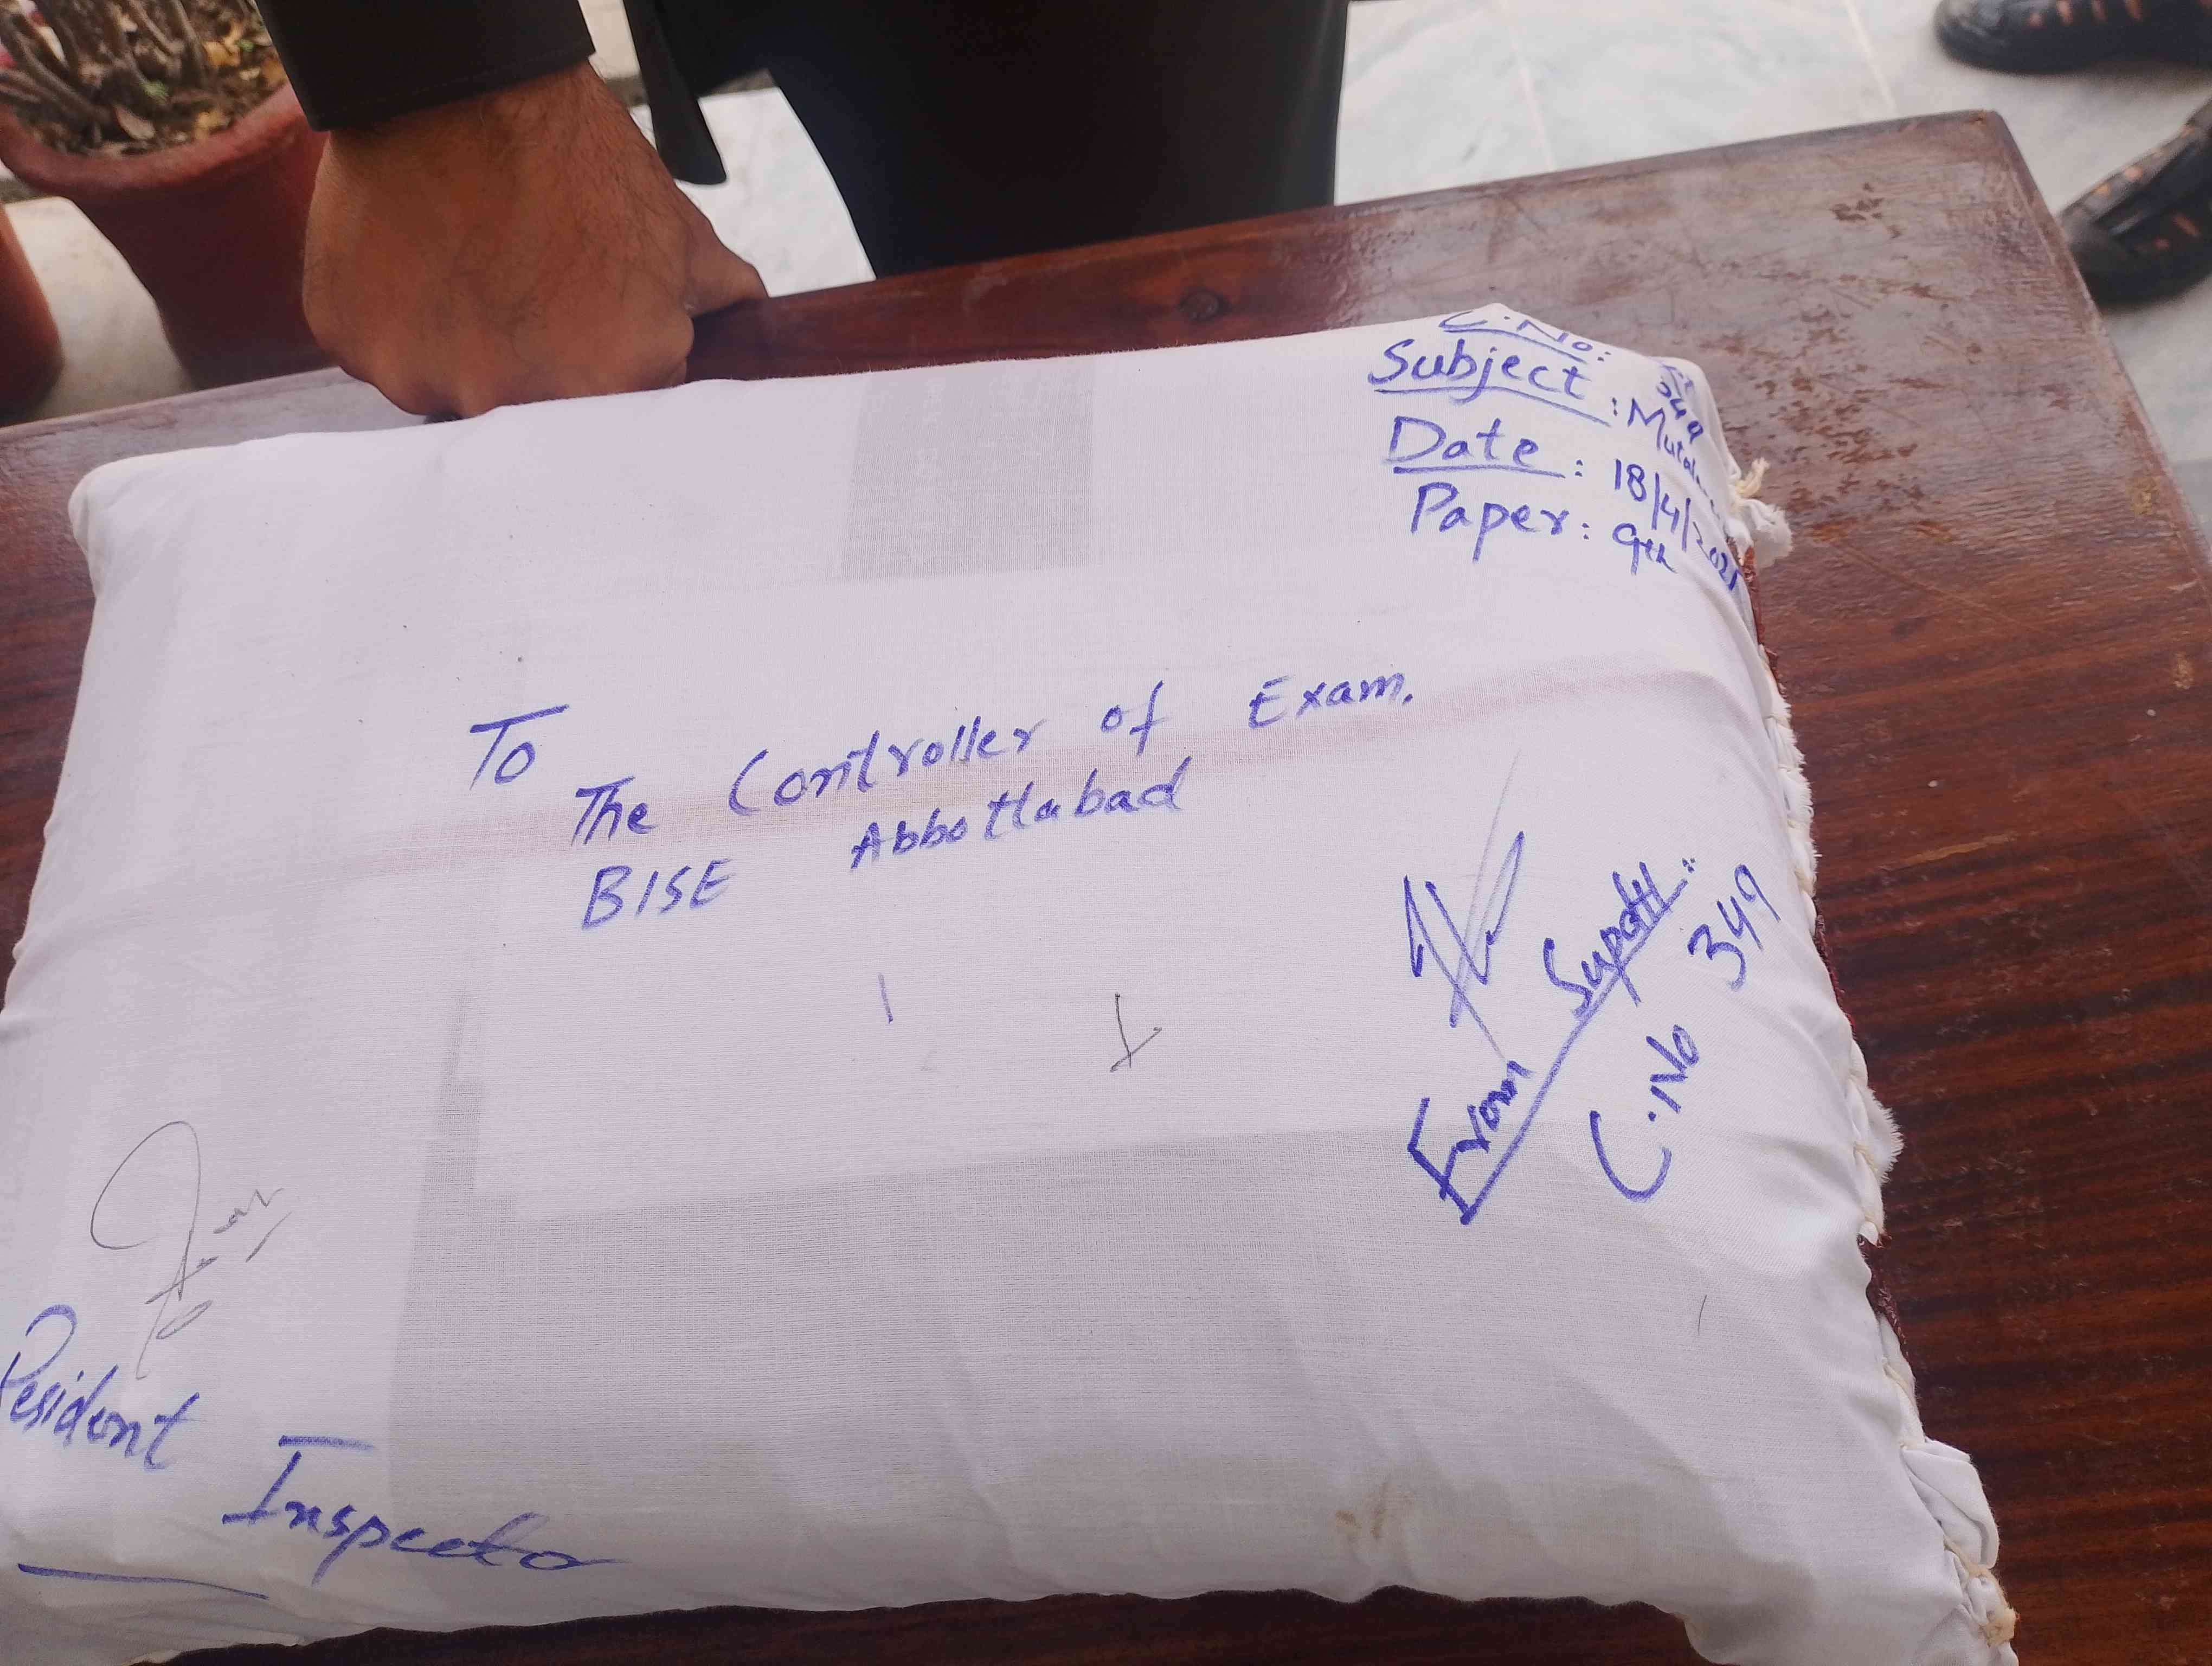 C.No:
Subject :
Date : 18/4/
Paper: 9th
To
The Controller of Exam.
BISE Abbottabad
From Supdtt:
C.No 349
Resident
Inspector